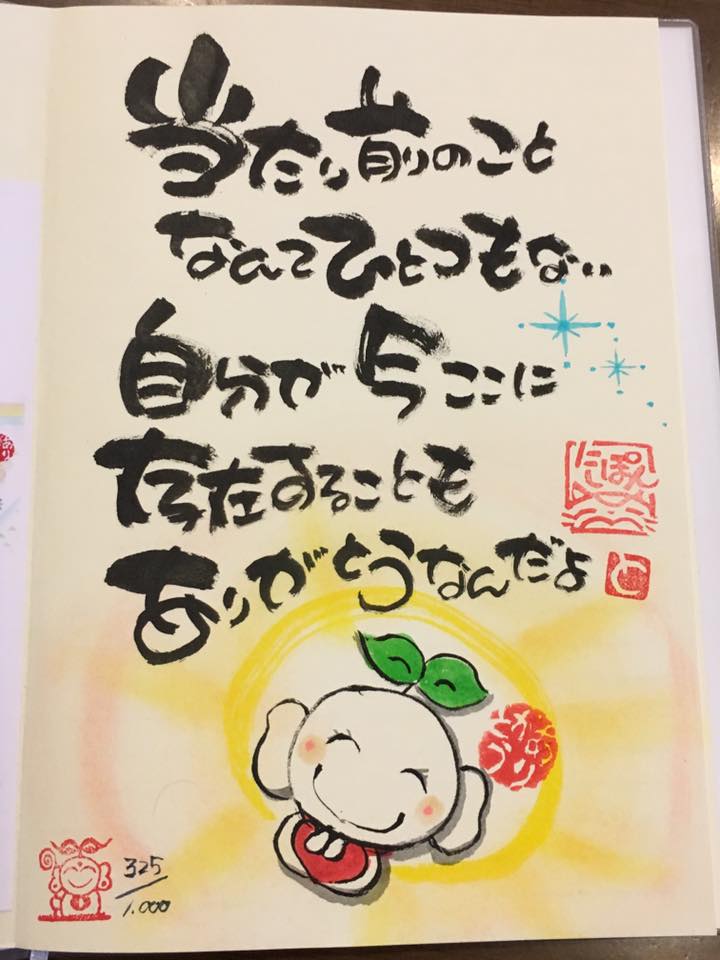 当たり前のこと
なんてひとつもない
自分が今ここに
存在することも
ありがとうなんだよ
にっぽん
と
ありがとう
325
1.000